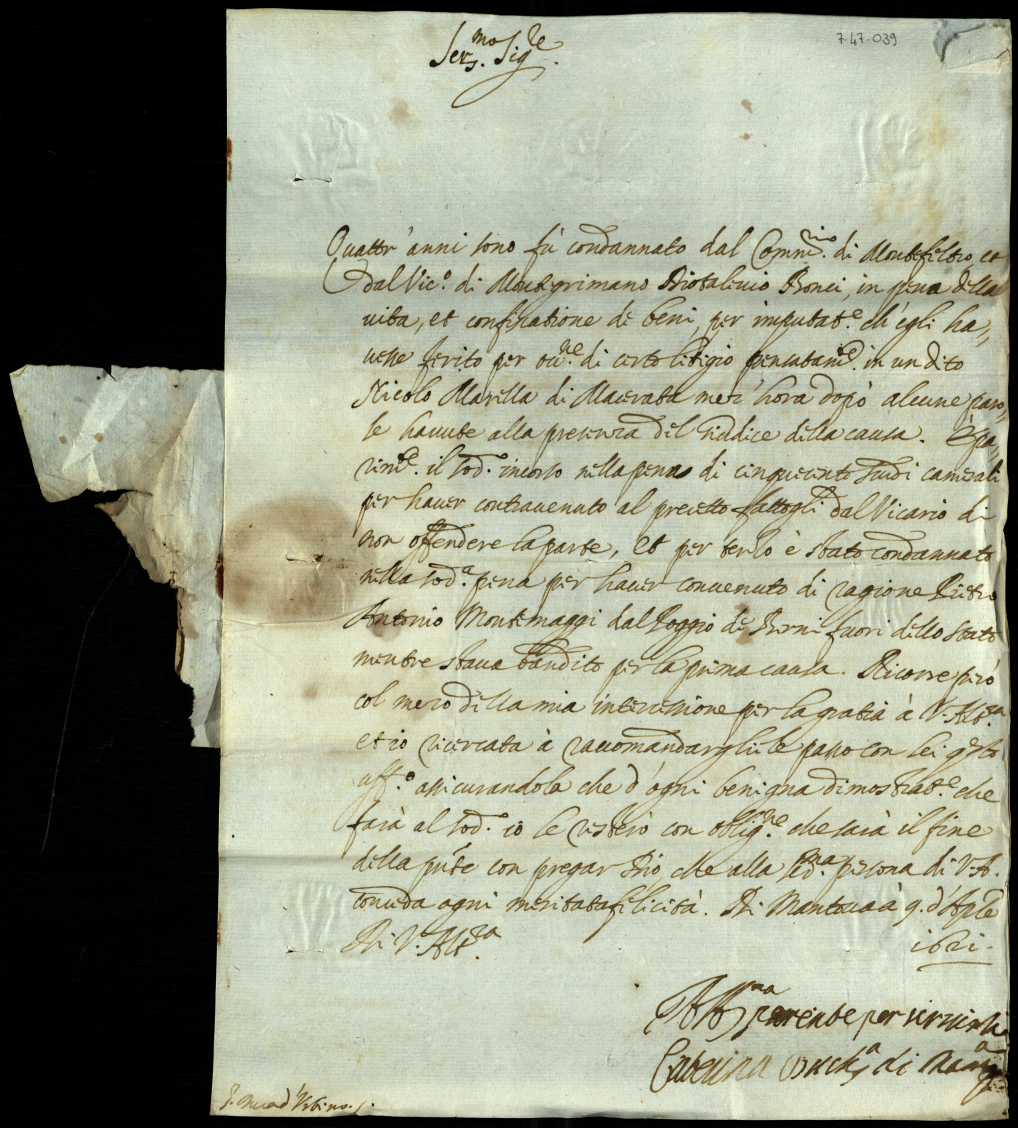 7-47-039
Ser.mo Sig.re
Quattr'anni sono fù condannato dal Comm.rio di Montefeltro et
dal Vic.o di Montegrimano Bonci, in pena della
vita, et confiscatione de beni, per imputat.e ch'egli ha,,
vesse ferito per occ.ne di certo litigio pensatam.e in un dito
Nicolo Marella di Macerata mez'hora dopò alcune paro,,
le havute alla presenza del Giudice della causa. È pa,,
rim.e il sod.o incorso nella pena di cinquecento scudi camerali
per haver contravenuto al precetto fattogli dal Vicario di
non offendere la parte, et per terzo è stato condannato
nella sod.a pena per haver convenuto di ragione Pietro
Antonio Montemaggi dal Poggio de Berni fuori dello stato
mentre stava bandito per la prima causa. Ricorre però
col mezo della mia intercessione per la gratia à V. Alt.za
et io ricercata à raccomandargliele passo con lei q.sto
uff.o assicurandola che d'ogni benigna dimostrat.e che
farà al sod.o io le resterò con oblig.ne che sarà il fine
della p.nte con pregar Dio, che alla Ser.ma persona di V. A.
conceda ogni meritata felicità. Di Mantova à 9. d'Ap.le
Di V. Alt.za 1621.
Aff.ma parente per servirla
Caterina Duch.a di Mant.a
S. Duca d'Urbino.